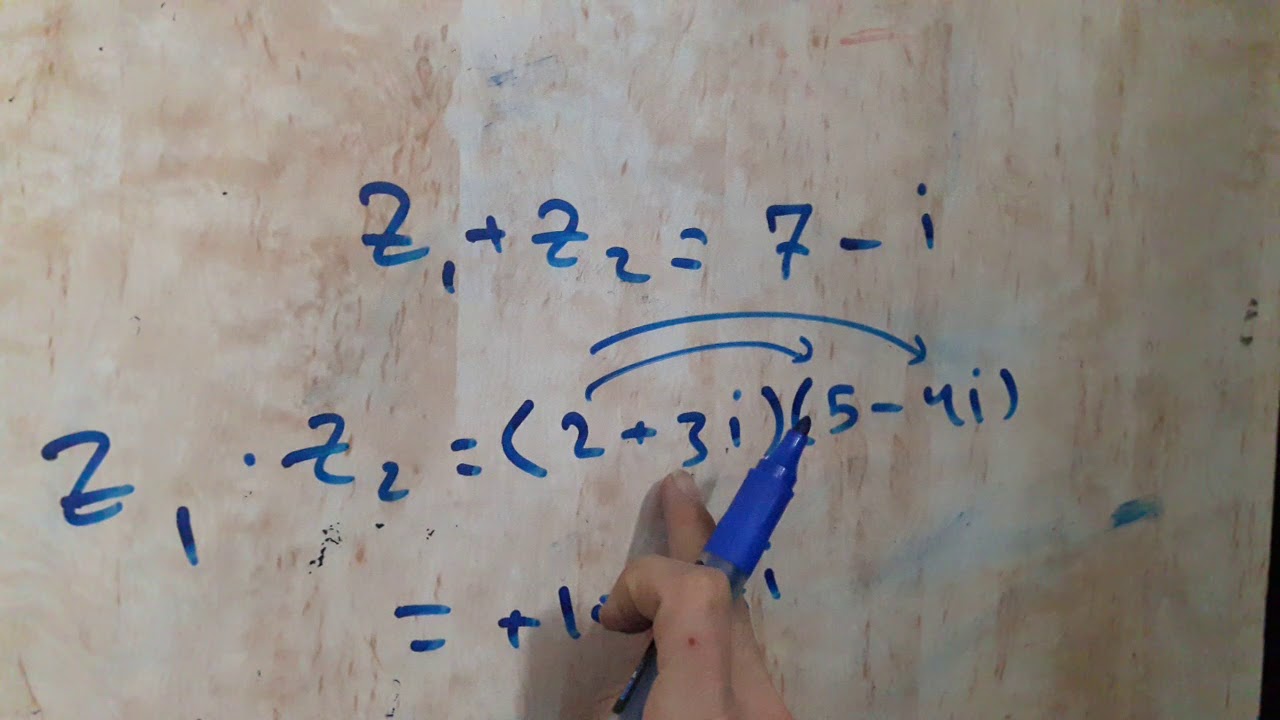 Z₁ + Z₂ = 7 - i
Z₁ · Z₂ = (2 + 3i)(5 - 4i)
= +1